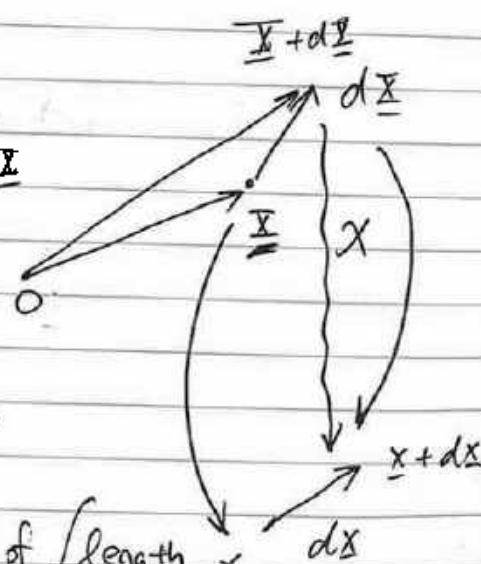 X + dX
dX
X
X
χ
O
x + dx
of length x
dx